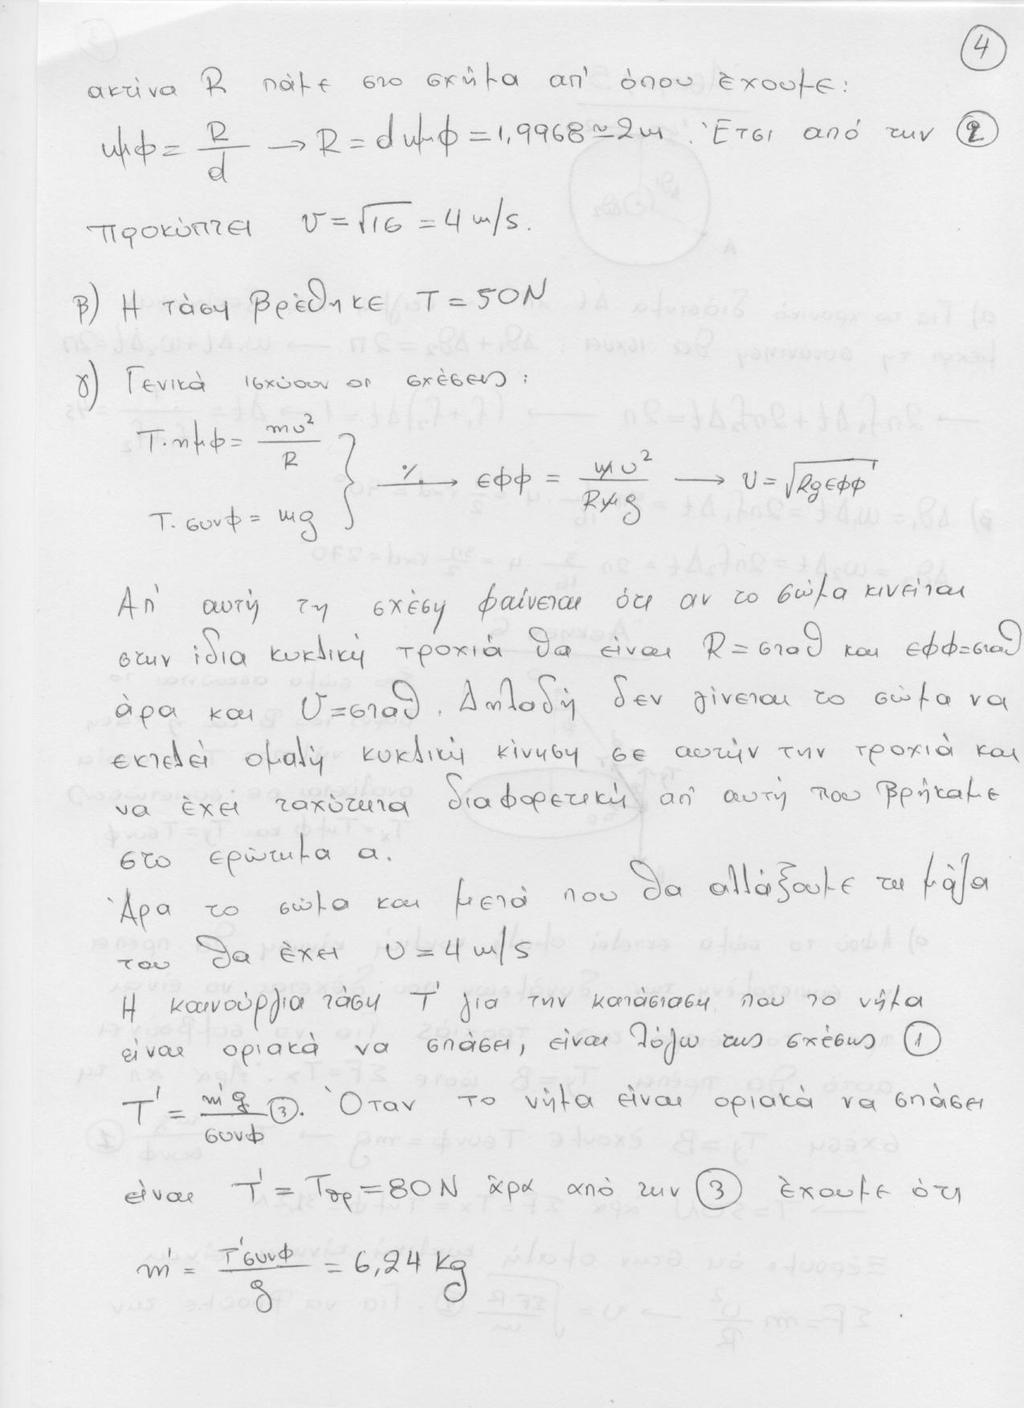 4
ακτίνα R πάμε στο σχήμα απ' όπου έχουμε:
ημφ = R/d → R = dημφ = 1,9968 ≃ 2m. Έτσι από την (2)
προκύπτει υ = √16 = 4 m/s.
β) Η τάση βρέθηκε T = 50N
γ) Γενικά ισχύουν οι σχέσεις:
T·ημφ = mυ²/R
T·συνφ = mg } ⟶(%) εφφ = mυ²/Rmg → υ = √Rgεφφ
Απ' αυτή τη σχέση φαίνεται ότι αν το σώμα κινείται
στην ίδια κυκλική τροχιά θα είναι R = σταθ και εφφ = σταθ
άρα και υ = σταθ. Δηλαδή δεν γίνεται το σώμα να
εκτελεί ομαλή κυκλική κίνηση σε αυτήν την τροχιά και
να έχει ταχύτητα διαφορετική απ' αυτή που βρήκαμε
στο ερώτημα α.
Άρα το σώμα και μετά που θα αλλάξουμε τη μάζα
του θα έχει υ = 4 m/s
Η καινούργια τάση T' για την κατάσταση που το νήμα
είναι οριακά να σπάσει, είναι λόγω της σχέσης (1)
T' = m'g/συνφ (3). Όταν το νήμα είναι οριακά να σπάσει
είναι T' = Tθρ = 80N άρα από την (3) έχουμε ότι
m' = T'συνφ/g = 6,24 kg